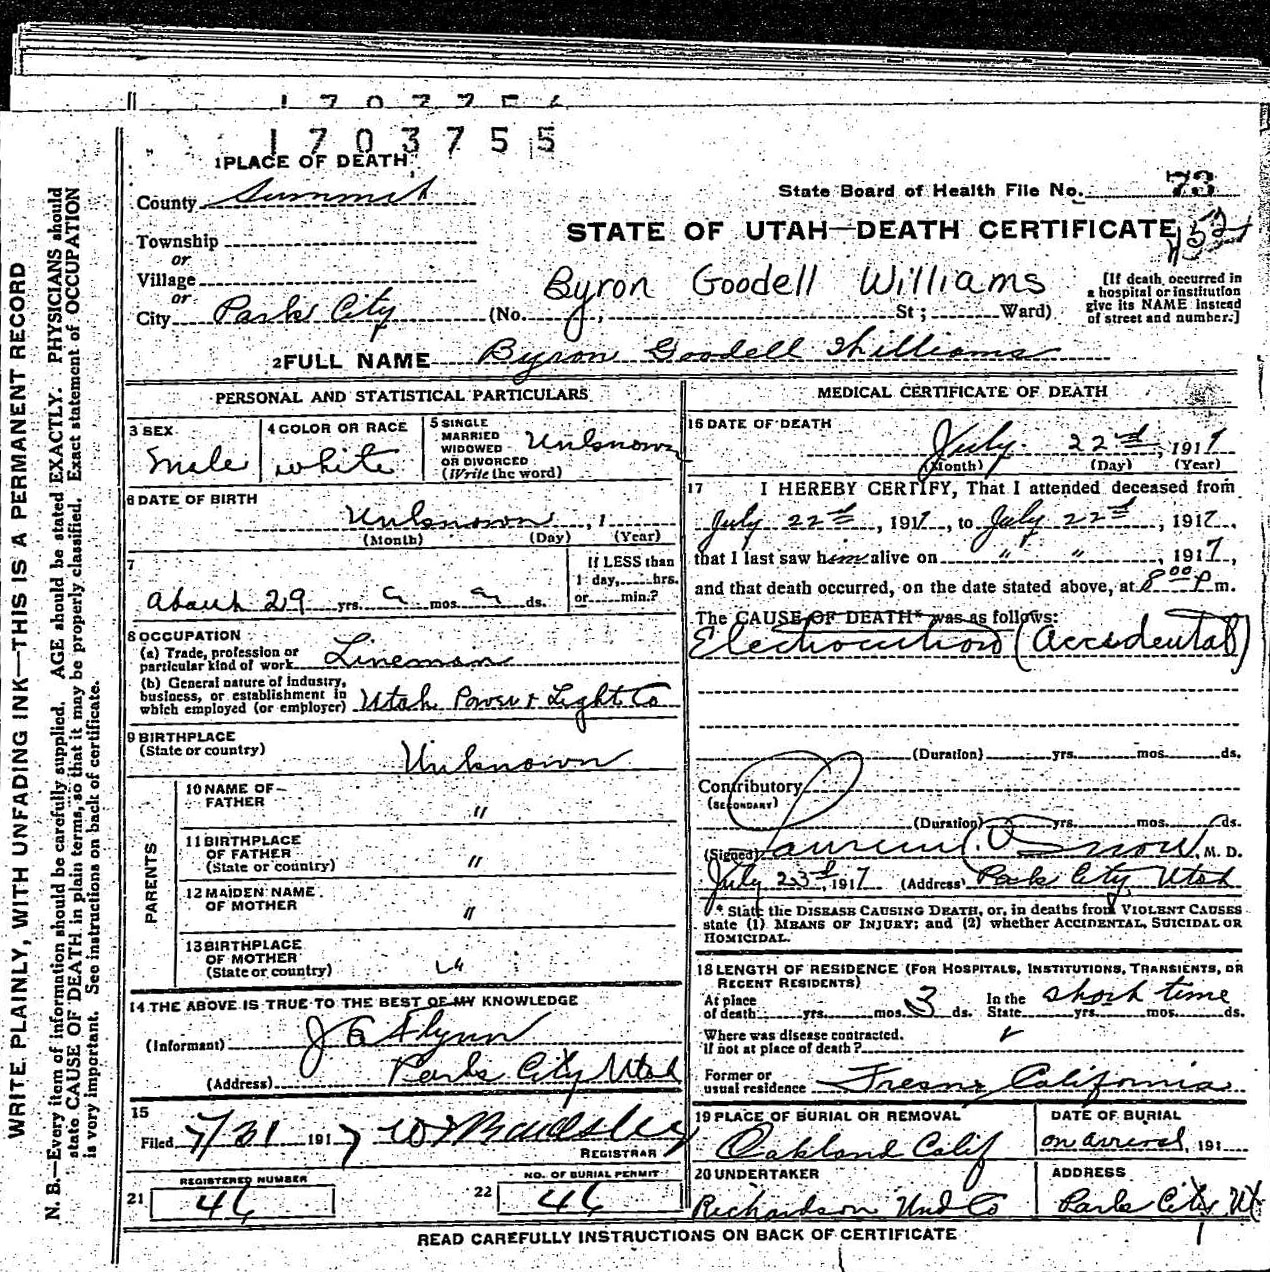 1703755
1 PLACE OF DEATH
County Summit
State Board of Health File No. 73
STATE OF UTAH—DEATH CERTIFICATE
Township
or
Village
or
City Park City (No. St; Ward)
Byron Goodell Williams
[If death occurred in
a hospital or institution
give its NAME instead
of street and number.]
2 FULL NAME Byron Goodell Williams
PERSONAL AND STATISTICAL PARTICULARS
3 SEX
Male
4 COLOR OR RACE
White
5 SINGLE
MARRIED
WIDOWED
OR DIVORCED
(Write the word)
Unknown
6 DATE OF BIRTH
Unknown, 1
(Month) (Day) (Year)
7
About 29 yrs. mos. ds.
If LESS than
1 day, hrs.
or min.?
8 OCCUPATION
(a) Trade, profession or
particular kind of work Lineman
(b) General nature of industry,
business, or establishment in
which employed (or employer) Utah Power & Light Co
9 BIRTHPLACE
(State or country)
Unknown
PARENTS
10 NAME OF
FATHER
"
11 BIRTHPLACE
OF FATHER
(State or country)
"
12 MAIDEN NAME
OF MOTHER
"
13 BIRTHPLACE
OF MOTHER
(State or country)
"
14 THE ABOVE IS TRUE TO THE BEST OF MY KNOWLEDGE
(Informant) J Flynn
(Address) Park City Utah
15
Filed 7/31 1917
REGISTRAR
REGISTERED NUMBER
21 46
NO. OF BURIAL PERMIT
22 46
MEDICAL CERTIFICATE OF DEATH
16 DATE OF DEATH
July 22nd, 1917
(Month) (Day) (Year)
17 I HEREBY CERTIFY, That I attended deceased from
July 22nd, 1917, to July 22nd, 1917,
that I last saw him alive on " ", 1917,
and that death occurred, on the date stated above, at 8 00 P m.
The CAUSE OF DEATH* was as follows:
Electrocution (Accidental)
(Duration) yrs. mos. ds.
Contributory
(SECONDARY)
(Duration) yrs. mos. ds.
(Signed) Snow, M. D.
July 23rd, 1917 (Address) Park City, Utah
* State the DISEASE CAUSING DEATH, or, in deaths from VIOLENT CAUSES
state (1) MEANS OF INJURY; and (2) whether ACCIDENTAL, SUICIDAL OR
HOMICIDAL.
18 LENGTH OF RESIDENCE (FOR HOSPITALS, INSTITUTIONS, TRANSIENTS, OR
RECENT RESIDENTS)
At place
of death yrs. mos. 3 ds.
In the
State yrs. mos. ds.
short time
Where was disease contracted.
if not at place of death?
Former or
usual residence Fresno California
19 PLACE OF BURIAL OR REMOVAL
Oakland Calif
DATE OF BURIAL
on arrival, 191
20 UNDERTAKER
Richardson Und Co
ADDRESS
Park City, Ut
READ CAREFULLY INSTRUCTIONS ON BACK OF CERTIFICATE
WRITE PLAINLY, WITH UNFADING INK—THIS IS A PERMANENT RECORD
N. B.—Every item of information should be carefully supplied. AGE should be stated EXACTLY. PHYSICIANS should
state CAUSE OF DEATH in plain terms, so that it may be properly classified. Exact statement of OCCUPATION
is very important. See instructions on back of certificate.